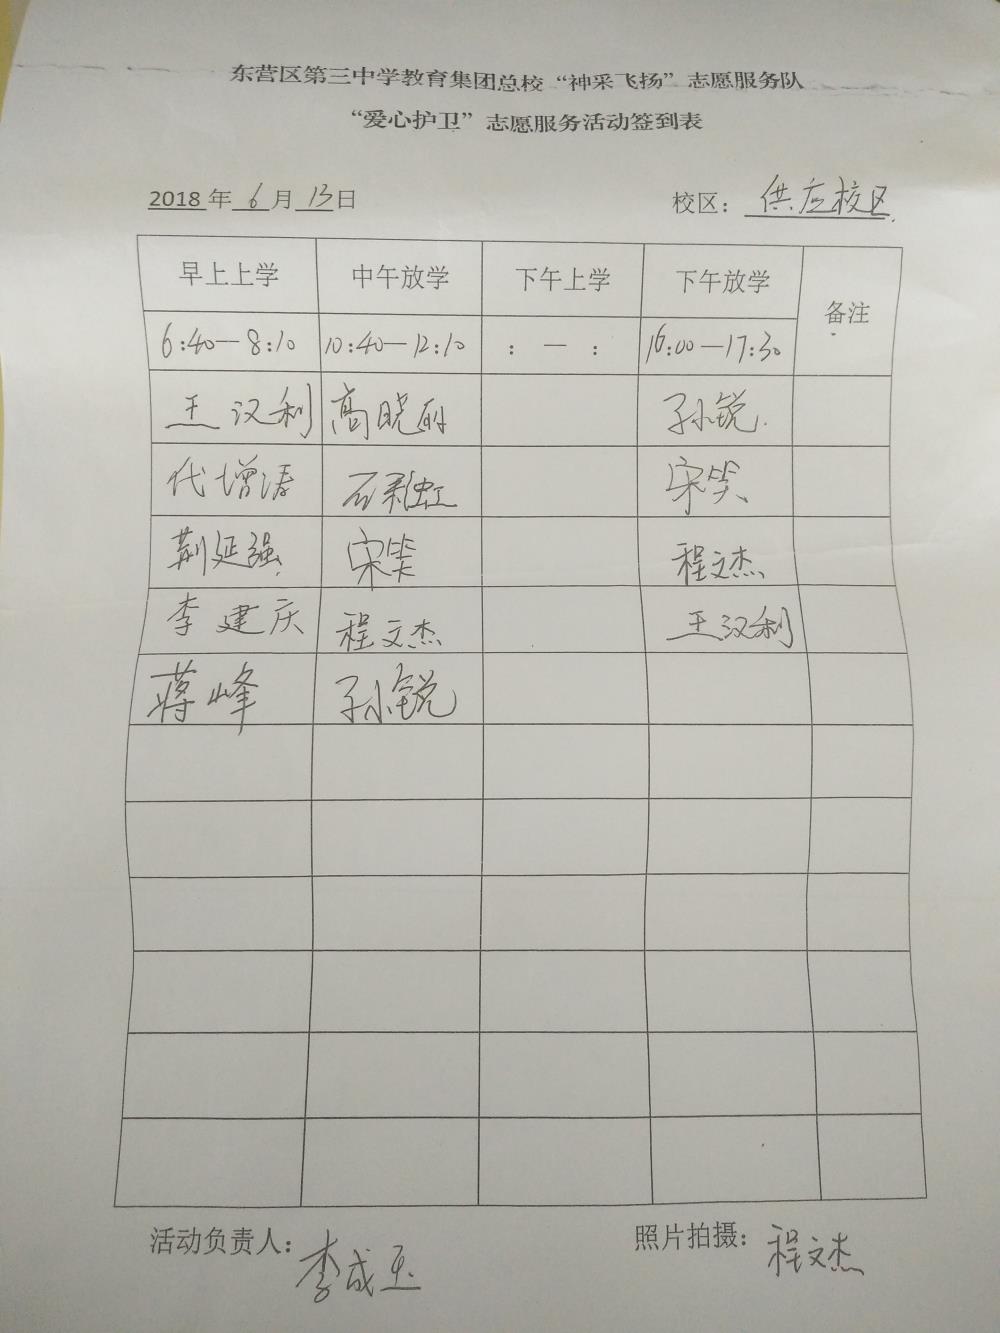 东营区第三中学教育集团总校“神采飞扬”志愿服务队
“爱心护卫”志愿服务活动签到表
2018年6月13日 校区：供应校区
早上上学 中午放学 下午上学 下午放学 备注
6:40—8:10 10:40—12:10 : — : 16:00—17:30
王汉利 高晓丽 孙锐
代增涛 石彩虹 宋笑
荆延强 宋笑 程文杰
李建庆 程文杰 王汉利
蒋峰 孙锐
活动负责人：李成玉 照片拍摄：程文杰